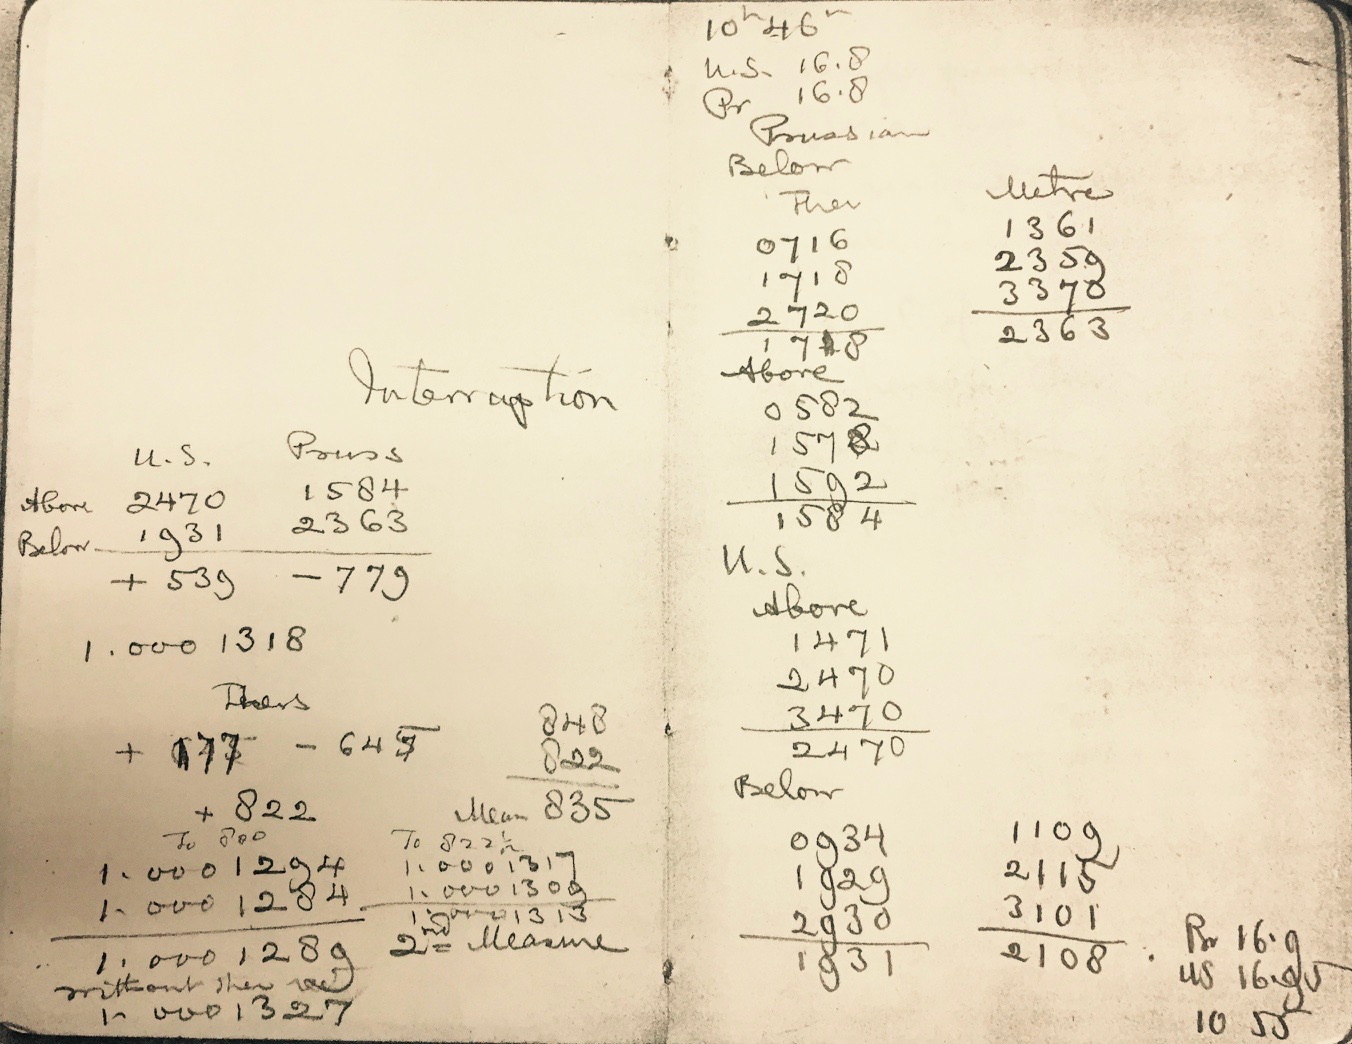 Interruption
U.S. Pruss
Above 2470 1584
Below 1931 2363
+ 539 - 779
1.000 1318
Thers
+ 177 - 645
848
822
+ 822 Mean 835
To 800 To 822½
1.000 1294 1.000 1317
1.000 1284 1.000 1309
1.000 1313
1.000 1289 2nd Measure
without ther
1.000 1327
10h 46m
U.S. 16.8
Pr 16.8
Prussian
Below
Ther Metre
0716 1361
1718 2359
2720 3370
1718 2363
Above
0582
1578
1592
1584
U.S.
Above
1471
2470
3470
2470
Below
0934 1109
1929 2115
2930 3101
1931 2108
Pr 16.9
US 16.95
10 55